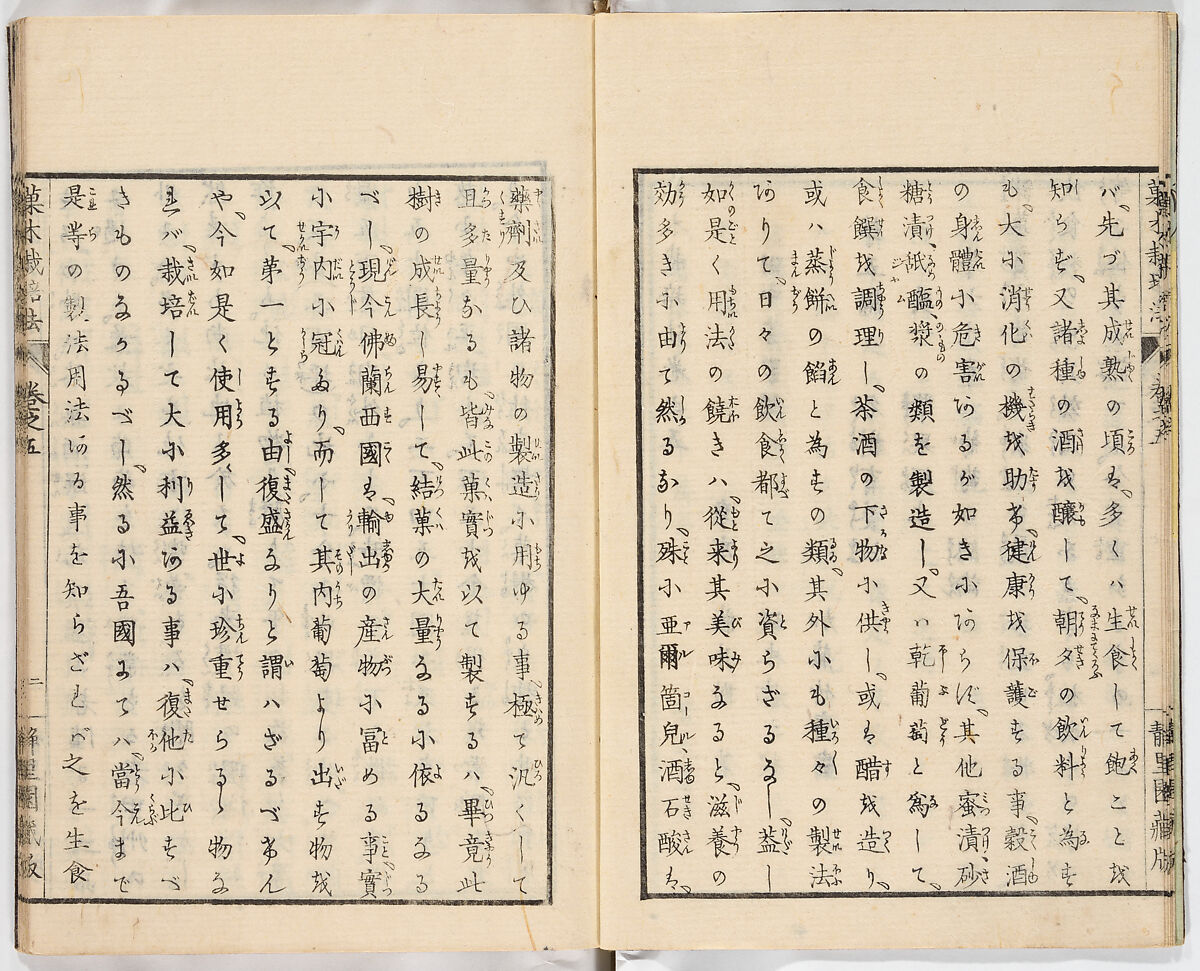 バ、先づ其成熟の頃は、多くハ生食して飽こと越
知らず、又諸種の酒越醸して、朝夕の飲料と為す
も、大小消化の機越助け、健康越保護する事、穀酒
の身體小危害あるが如き小あらず、其他蜜漬、砂
糖漬、舐醢、漿の類を製造し、又ハ乾葡萄と為して、
食饌越調理し、茶酒の下物小供し、或は醋越造り、
或ハ蒸餅の餡と為すの類、其外小も種々の製法
ありて、日々の飲食都て之小資らざるなし、蓋し
如是く用法の饒きハ、從来其美味なると、滋養の
効多き小由て然るなり、殊小亜爾箇兒、酒石酸は、
藥劑及ひ諸物の製造小用ゆる事、極て汎くして
且多量なるも、皆此菓實越以て製するハ、畢竟此
樹の成長し易して、結菓の大量なる小依るなる
べし、現今佛蘭西國は、輸出の産物小冨める事、實
小宇内小冠たり、而して其内葡萄より出す物越
以て、第一とする由、復盛なりと謂ハざるべけん
や、今如是く使用多くして、世小珍重せらるゝ物な
れバ、栽培して大小利益ある事ハ、復他小此すべ
きものなかるべし、然る小吾國にてハ、當今まで
是等の製法用法ある事を知らざれバ之を生食
菓木栽培法 巻之五
二
静里園藏版